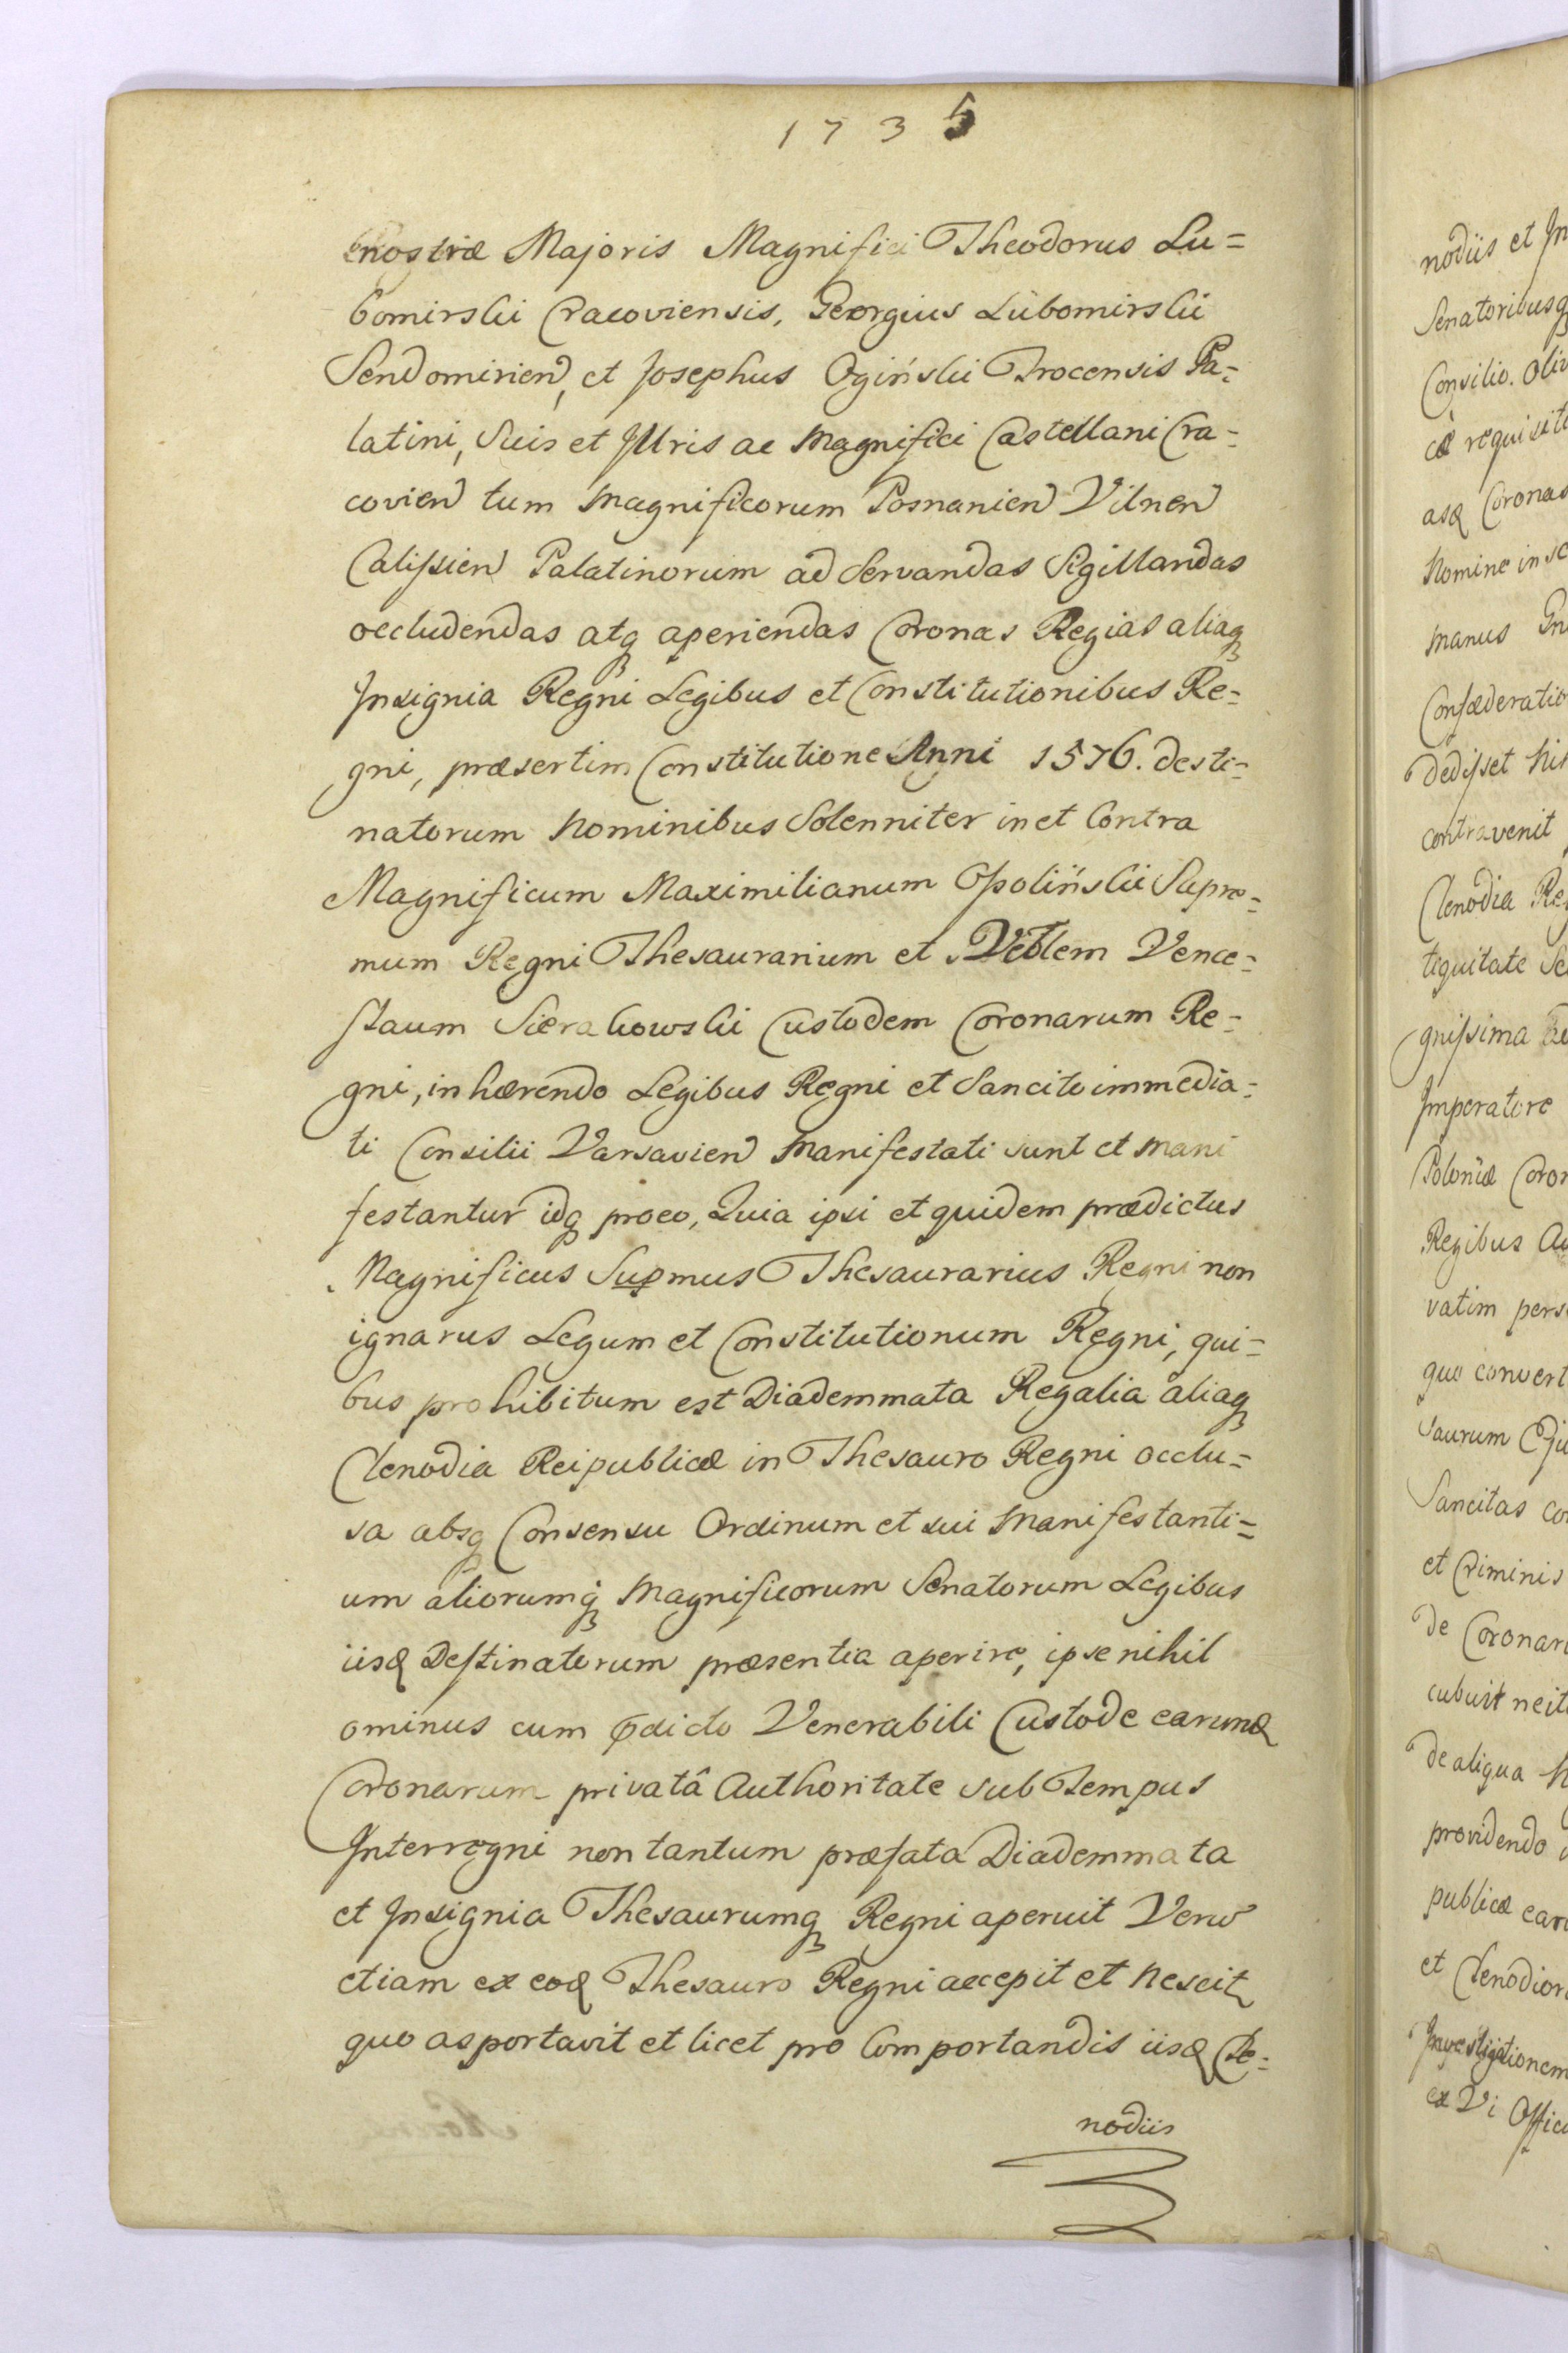 1735
nostræ Majoris Magnifici Theodorus Lu=
bomirski Cracoviensis, Georgius Lubomirski
Sendomirien, et Josephus Ogiński Trocensis Pa=
latini, Suis et Illris ac Magnifici Castellani Cra=
covien tum Magnificorum Posnanien Vilnen
Calissien Palatinorum ad Servandas Sigillandas
occludendas atq aperiendas Coronas Regias aliaq
Insignia Regni Legibus et Constitutionibus Re=
gni, præsertim Constitutione Anni 1576. desti=
natorum Nominibus Solenniter in et Contra
Magnificum Maximilianum Ossoliński Supre=
mum Regni Thesaurarium et Veblem Vence=
slaum Sierakowski Custodem Coronarum Re=
gni, inhærendo Legibus Regni et Sancito immedia=
ti Consilii Varsavien Manifestati sunt et Mani
festantur idq pro eo, Quia ipsi et quidem prædictus
Magnificus Supmus Thesaurarius Regni non
ignarus Legum et Constitutionum Regni, qui=
bus prohibitum est Diademmata Regalia aliaq
Clenodia Reipublicæ in Thesauro Regni occlu=
sa absq Consensu Ordinum et sui Manifestanti=
um aliorumq Magnificorum Senatorum Legibus
iisd Destinatorum præsentia aperire, ipse nihil
ominus cum pdicto Venerabili Custode earund
Coronarum privatâ Authoritate sub Tempus
Interregni non tantum præfata Diademmata
et Insignia Thesaurumq Regni aperuit Verum
etiam ex eod Thesauro Regni accepit et Nescit
quo asportavit et licet pro Comportandis iisd Cle=
nodiis
nodiis et In
Senatoribusq
Consilio. Oliv
cæ requisit
asd Coronas
Nomine in
manus
Confæderatio
Dedisset
contravenit
Clenodia Re
tiquitate Se
gnissima
Imperatore
Poloniæ Coron
Regibus Au
vatim pers
quo convert
saurum
Sancitas co
et Criminis
de Coronar
cubuit neit
de aliqua
providendo
publicæ ear
et Clenodior
Investigationem
ex Vi Offici